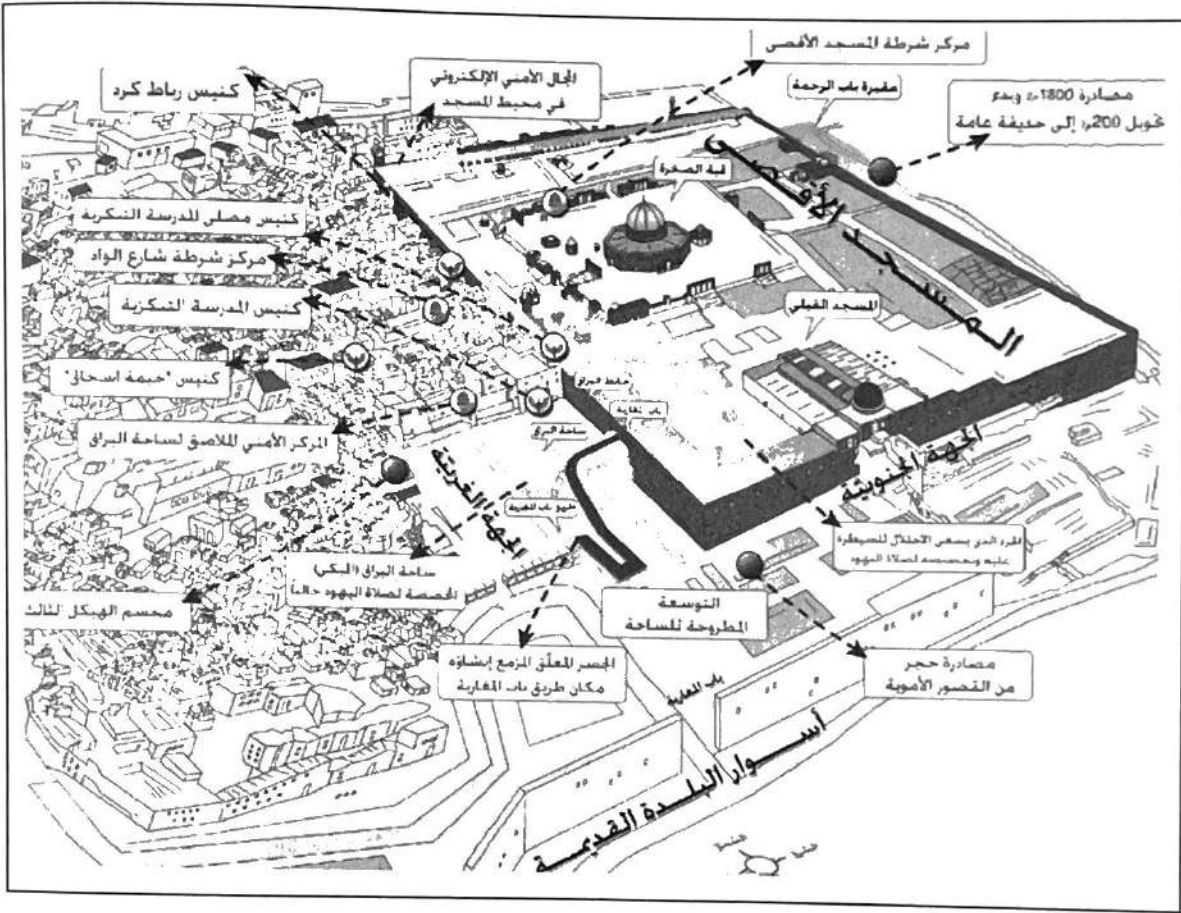 مركز شرطة المسجد الأقصى
المجال الأمني الإلكتروني
في محيط المسجد
كنيس رباط كرد
مقبرة باب الرحمة
مصادرة 1800م2 وبدء
تحويل 200م2 إلى حديقة عامة
قبة الصخرة
المسجد الأقصى
كنيس مصلى المدرسة التنكزية
مركز شرطة شارع الواد
كنيس المدرسة التنكزية
المسجد القبلي
كنيس "خيمة اسحاق"
حائط البراق
باب المغاربة
ساحة البراق
المركز الأمني الملاصق لساحة البراق
الجهة الغربيّة
الجهة الجنوبيّة
طريق باب المغاربة
الجزء الذي يسعى الاحتلال للسيطرة
عليه وتخصيصه لصلاة اليهود
ساحة البراق (المبكى)
المخصصة لصلاة اليهود حاليا
مجسم الهيكل الثالث
التوسعة
المطروحة للساحة
الجسر المعلّق المزمع إنشاؤه
مكان طريق باب المغاربة
مصادرة حجر
من القصور الأموية
باب المغاربة
أسوار البلدة القديمة